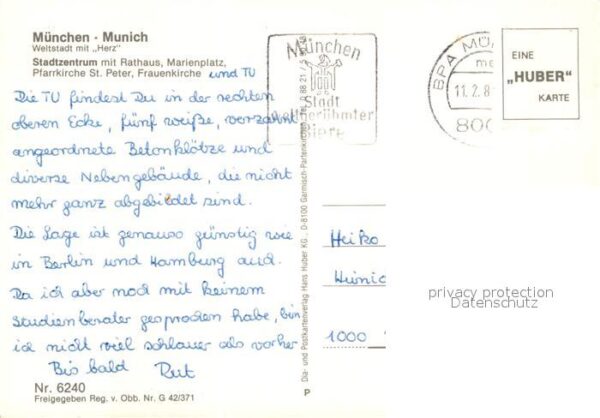 München · Munich
Weltstadt mit „Herz"
Stadtzentrum mit Rathaus, Marienplatz,
Pfarrkirche St. Peter, Frauenkirche und TU
Die TU findest Du in der rechten
oberen Ecke, fünf weiße, verzahnt
angeordnete Betonklötze und
diverse Nebengebäude, die nicht
mehr ganz abgebildet sind.
Die Lage ist genauso günstig wie
in Berlin und Hamburg auch.
Da ich aber noch mit keinem
Studienberater gesprochen habe, bin
ich nicht viel schlauer als vorher
Bis bald Rut
Nr. 6240
Freigegeben Reg. v. Obb. Nr. G 42/371
München
Stadt
weltberühmter
Biere
BPA MÜ
11.2.8
800
EINE
„HUBER"
KARTE
Dia- und Postkartenverlag Hans Huber KG., D-8100 Garmisch-Partenkirchen, Tel. 0 88 21 / 5
P
Heiko
1000
privacy protection
Datenschutz